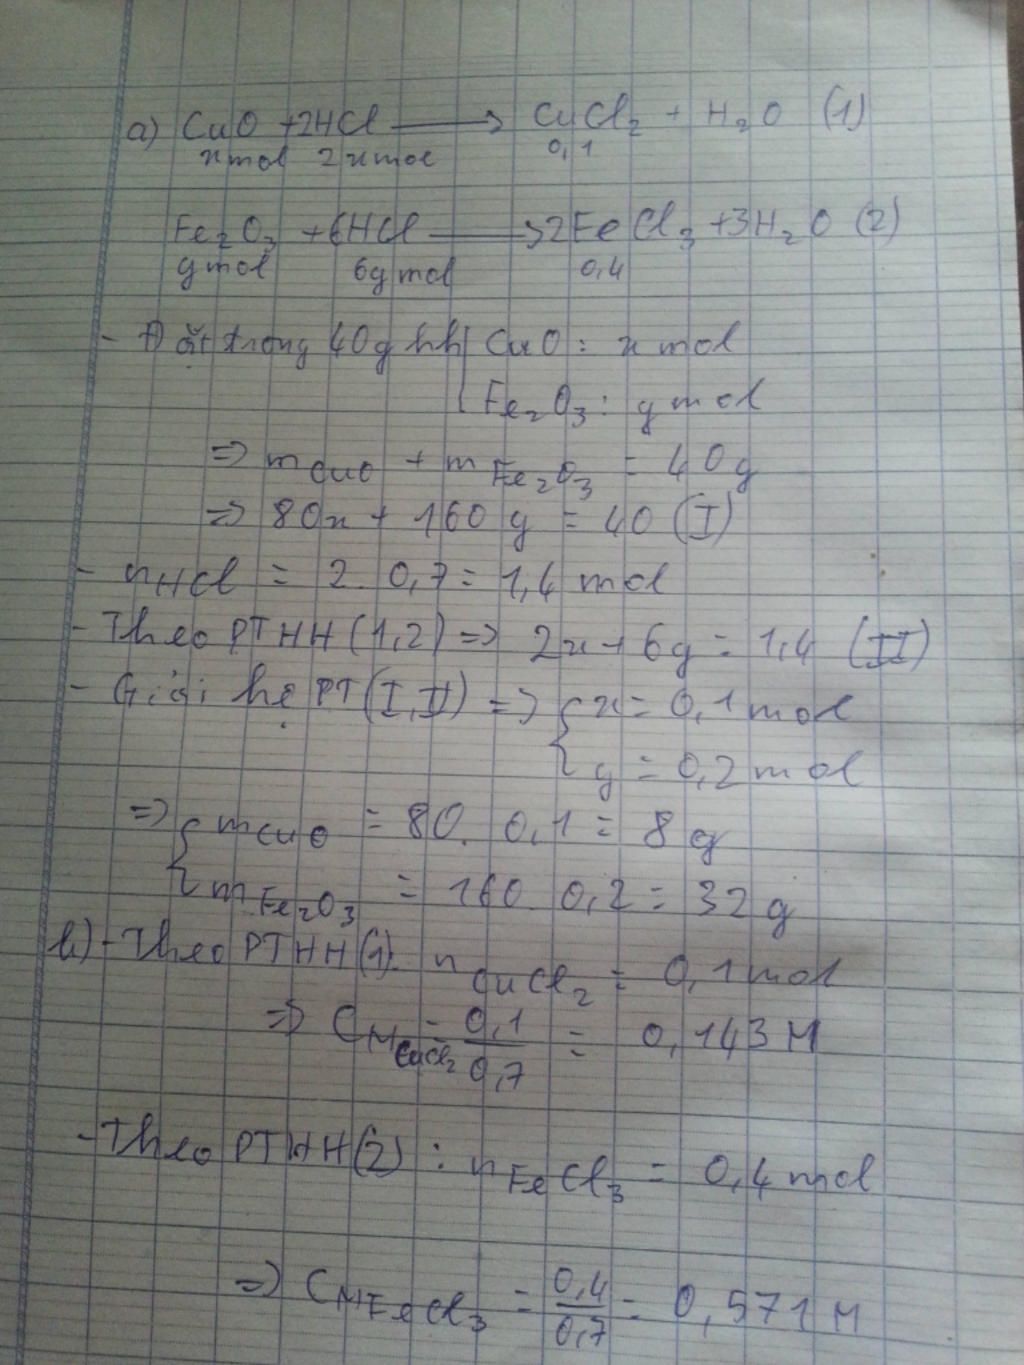 a) CuO + 2HCl ⟶ CuCl₂ + H₂O (1)
x mol 2x mol 0,1
Fe₂O₃ + 6HCl ⟶ 2FeCl₃ + 3H₂O (2)
y mol 6y mol 0,4
- Đặt trong 40g hh { CuO : x mol
Fe₂O₃ : y mol
=> m CuO + m Fe₂O₃ = 40g
=> 80x + 160y = 40 (I)
- nHCl = 2. 0,7 = 1,4 mol
- Theo PTHH(1,2) => 2x + 6y = 1,4 (II)
- Giải hệ PT(I,II) => { x = 0,1 mol
y = 0,2 mol
=> { mCuO = 80. 0,1 = 8 g
mFe₂O₃ = 160. 0,2 = 32 g
b) - Theo PTHH(1): nCuCl₂ = 0,1 mol
=> CM CuCl₂ = 0,1/0,7 = 0,143 M
- Theo PTHH(2) : nFeCl₃ = 0,4 mol
=> CM FeCl₃ = 0,4/0,7 = 0,571 M